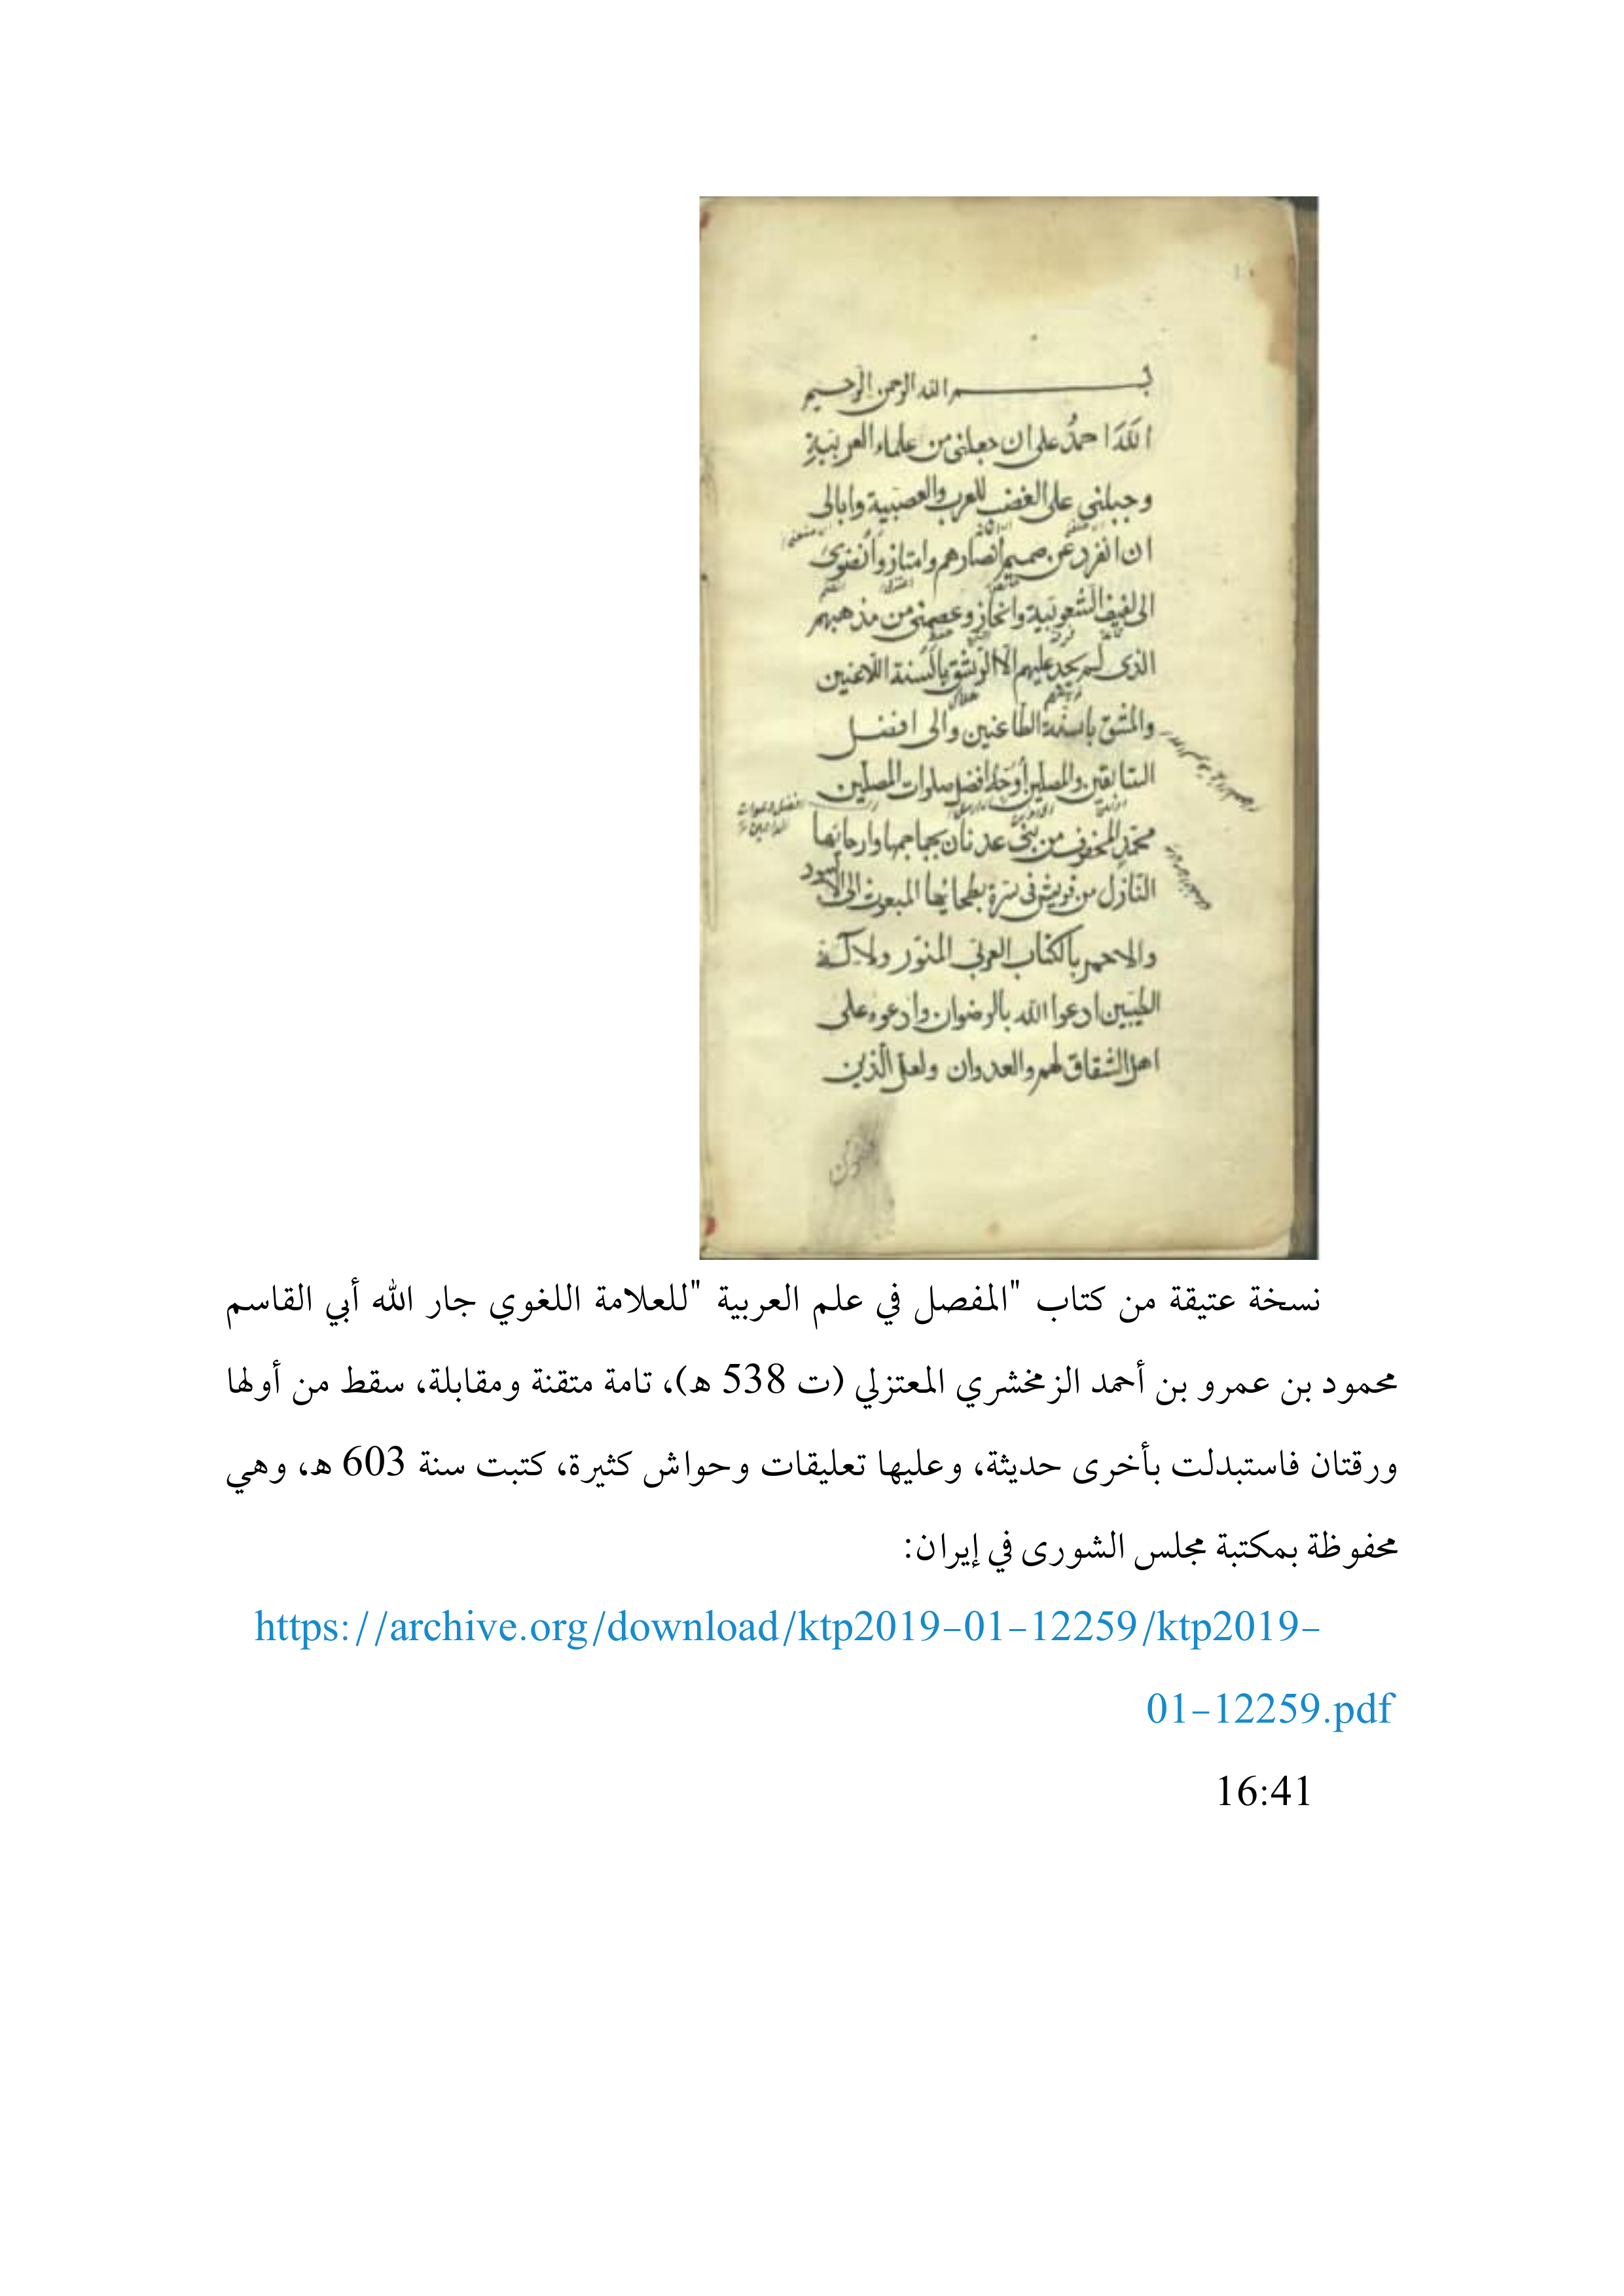 بسم الله الرحمن الرحيم
الله احمدُ على ان جعلنى من علماء العربية
وجبلنى على الغضب للعرب والعصبية وابالى
ان انفرد عن صميم انصارهم وامتاز وانضوى
الى لفيف الشعوبية وانحاز وعصمنى من مذهبهم
الذى لم يجد عليهم الا الرشق بالسنة اللاعنين
والمشق باسنة الطاعنين والى افضل
السابقين والمصلين اوجه افضل صلوات المصلين
محمد المحفوف من بنى عدنان بجماجمها وارحائها
النازل من قريش فى سرة بطحائها المبعوث الى الاسود
والاحمر بالكتاب العربى المنور ولآله
الطيبين ادعوا الله بالرضوان وادعوه على
اهل الشقاق لهم والعدوان ولعل الذين
نسخة عتيقة من كتاب "المفصل في علم العربية "للعلامة اللغوي جار الله أبي القاسم
محمود بن عمرو بن أحمد الزمخشري المعتزلي (ت 538 هـ)، تامة متقنة ومقابلة، سقط من أولها
ورقتان فاستبدلت بأخرى حديثة، وعليها تعليقات وحواش كثيرة، كتبت سنة 603 هـ، وهي
محفوظة بمكتبة مجلس الشورى في إيران:
https://archive.org/download/ktp2019-01-12259/ktp2019-
01-12259.pdf
16:41